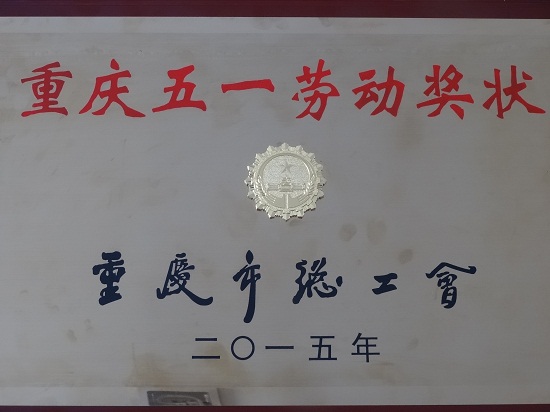 重庆五一劳动奖状
重慶市總工會
二〇一五年